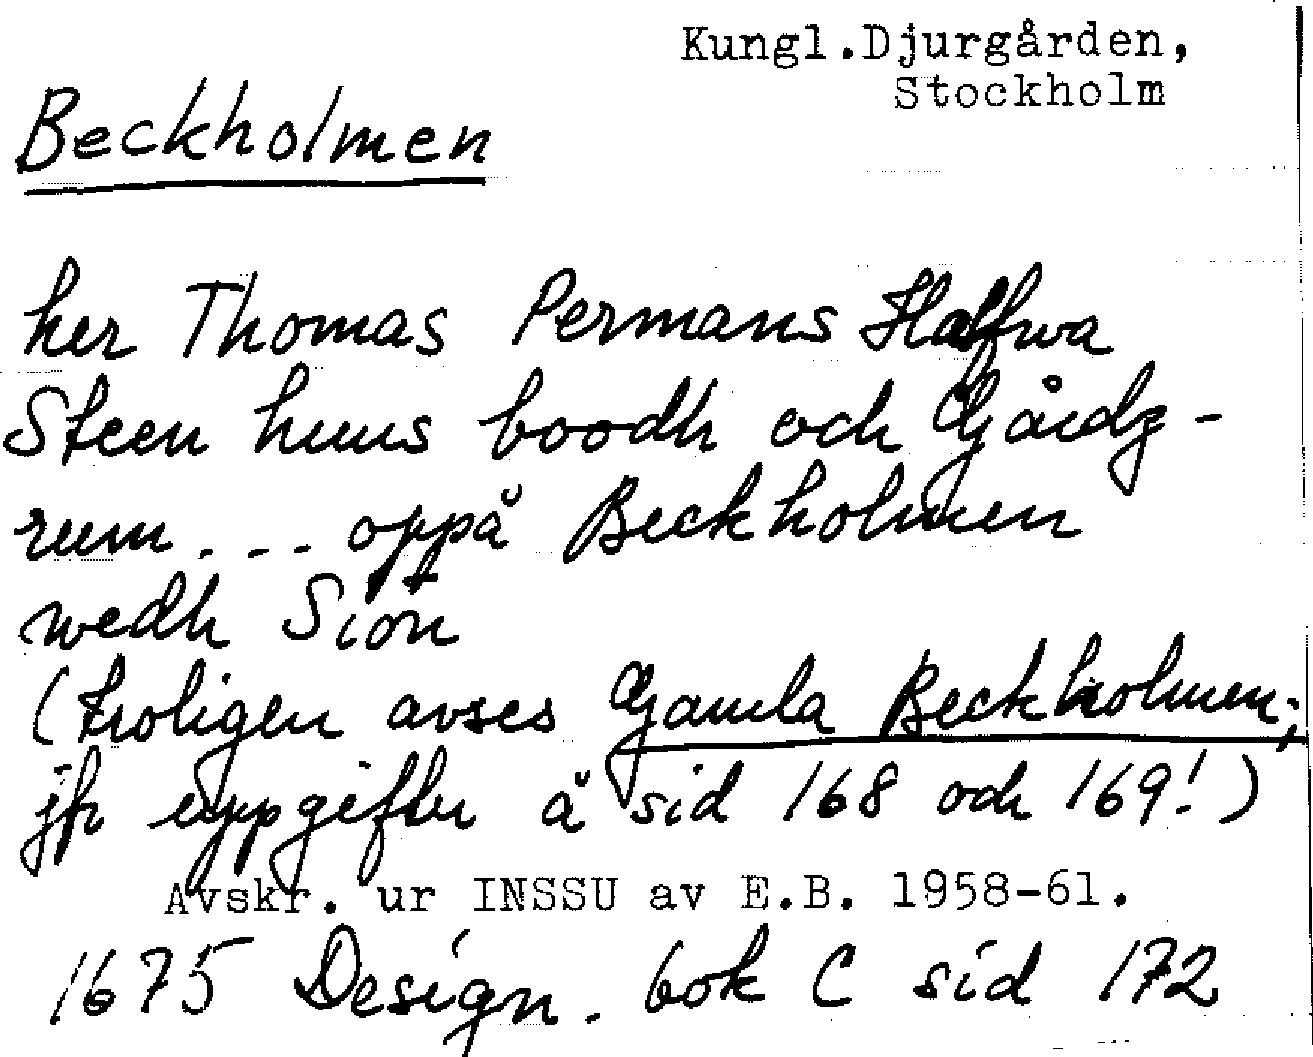 Kungl.Djurgården,
Stockholm
Beckholmen
her Thomas Permans Halfwa
Steen huus boodh och Gårdz-
rum... oppå Beckholmen
wedh Siön
(troligen avses Gamla Beckholmen;
jfr uppgifter å sid 168 och 169!)
Avskr. ur INSSU av E.B. 1958-61.
1675 Design. bok C sid 172